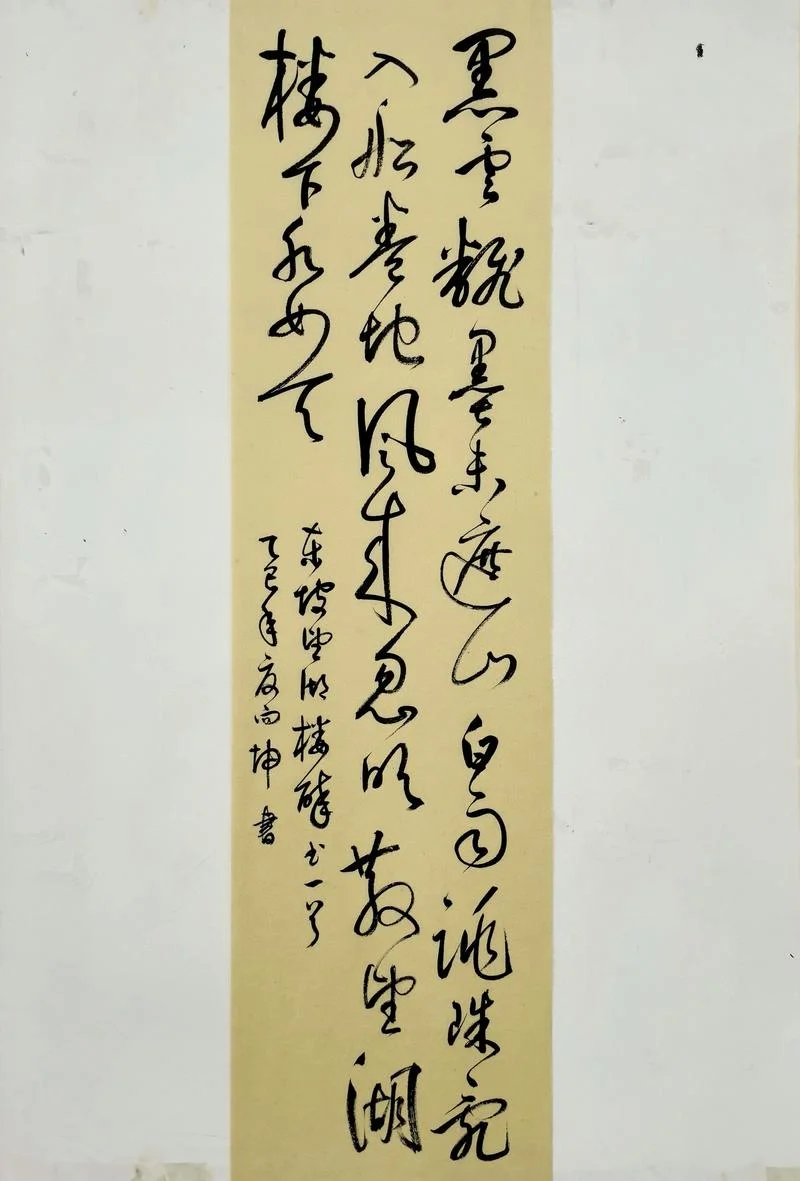 黑雲飜墨未遮山白雨跳珠亂
入船卷地风来忽吹散望湖
楼下水如天
东坡望湖楼醉书一首
乙巳年夏坤書